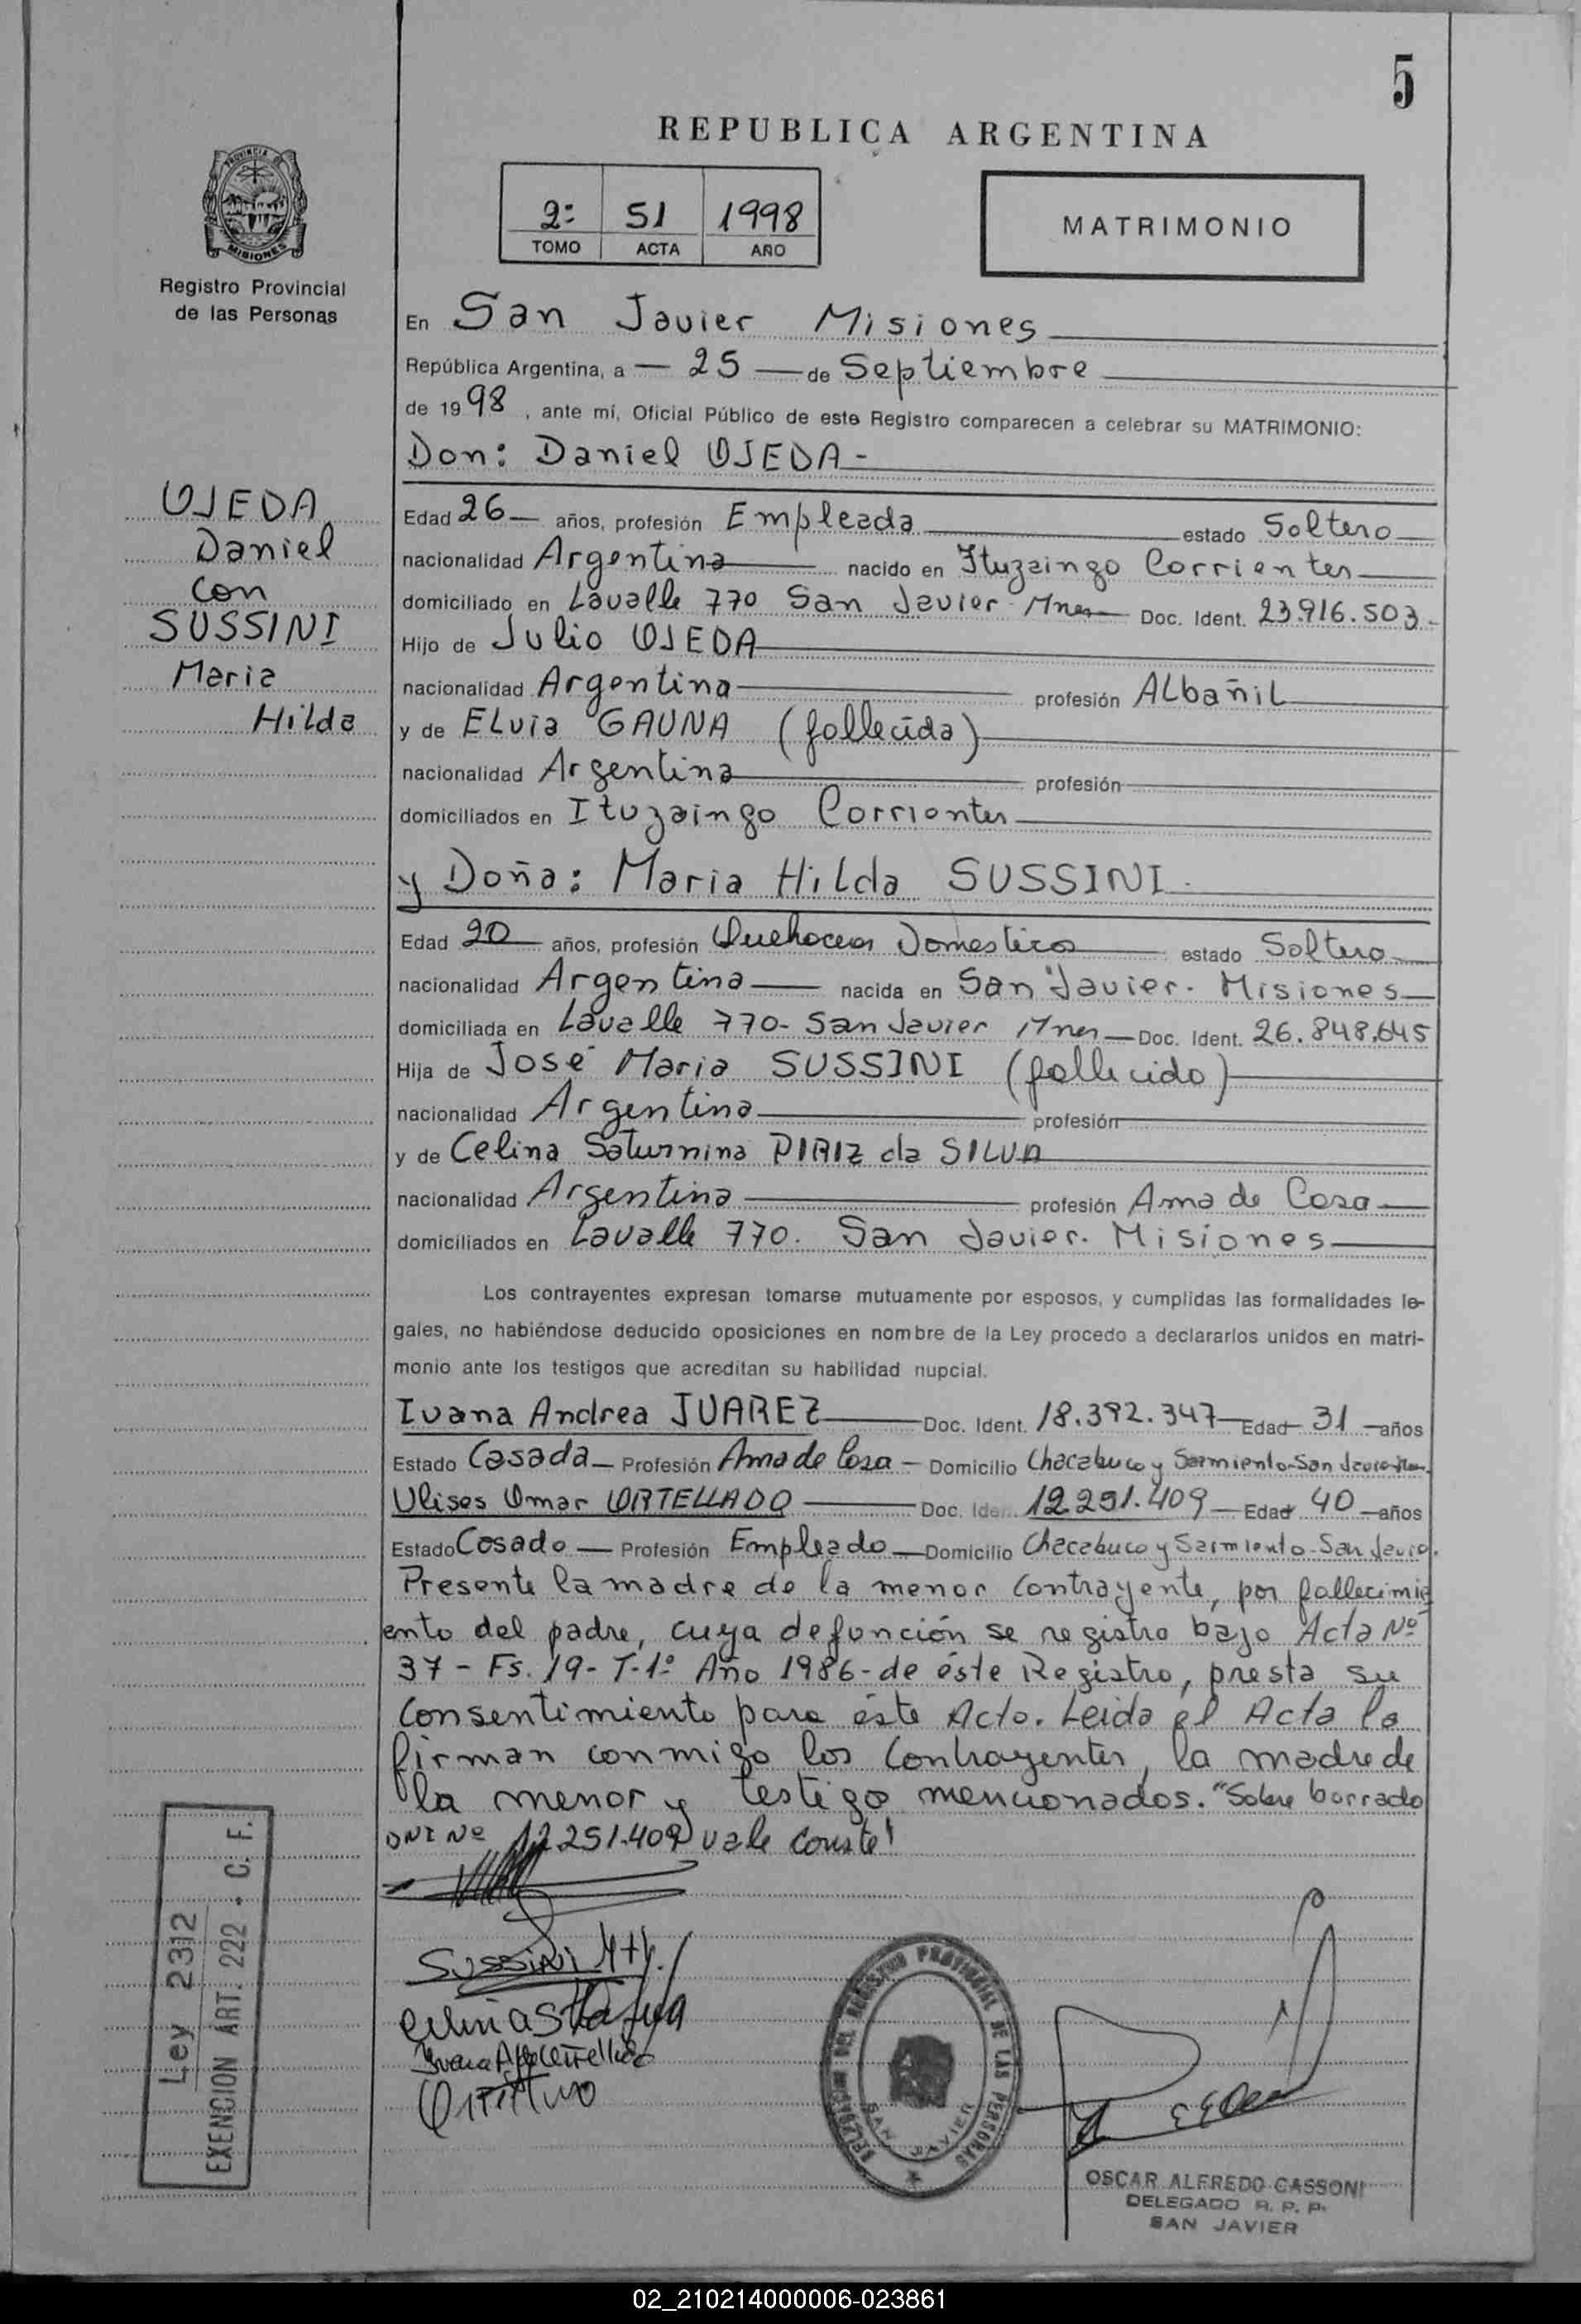 5
REPUBLICA ARGENTINA
PROVINCIA DE
MISIONES
Registro Provincial
de las Personas
2º 51 1998
TOMO ACTA AÑO
MATRIMONIO
En San Javier Misiones
República Argentina, a 25 de Septiembre
de 1998, ante mí, Oficial Público de este Registro comparecen a celebrar su MATRIMONIO:
Don: Daniel OJEDA-
OJEDA
Daniel
con
SUSSINI
Maria
Hilda
Edad 26 años, profesión Empleada estado Soltero
nacionalidad Argentina nacido en Ituzaingo Corrientes
domiciliado en Lavalle 770 San Javier Mnes Doc. Ident. 23.916.503-
Hijo de Julio OJEDA
nacionalidad Argentina profesión ALbañiL
y de ELvia GAUNA (fallecida)
nacionalidad Argentina profesión
domiciliados en Ituzaingo Corrientes
y Doña: Maria HiLda SUSSINI.
Edad 20 años, profesión Quehaceres Domesticos estado Soltero
nacionalidad Argentina nacida en San Javier. Misiones
domiciliada en Lavalle 770- San Javier Mnes Doc. Ident. 26.848.645
Hija de José Maria SUSSINI (fallecido)
nacionalidad Argentina profesión
y de Celina Saturnina PIRIZ da SILVA
nacionalidad Argentina profesión Ama de Casa
domiciliados en Lavalle 770. San Javier. Misiones
Los contrayentes expresan tomarse mutuamente por esposos, y cumplidas las formalidades le-
gales, no habiéndose deducido oposiciones en nombre de la Ley procedo a declararlos unidos en matri-
monio ante los testigos que acreditan su habilidad nupcial.
Ivana Andrea JUAREZ Doc. Ident. 18.392.347 Edad 31 años
Estado Casada Profesión Ama de Casa Domicilio Chacabuco y Sarmiento-San Javier
Ulises Omar ORTELLADO Doc. Iden. 12.251.409 Edad 40 años
Estado Casado Profesión Empleado Domicilio Chacabuco y Sarmiento-San Javier.
Presente la madre de la menor contrayente, por fallecimi
ento del padre, cuya defunción se registro bajo Acta Nº
37 - Fs. 19- T-1º Año 1986-de éste Registro, presta su
consentimiento para éste Acto. Leida el Acta la
firman conmigo los Contrayentes, la madre de
la menor y testigo mencionados. "Sobre borrado
DNI Nº 12.251.409 vale Conste!
SUSSINI M+H.
Ley 2312
EXENCION ART. 222 - C. F.
DEL REGISTRO PROVINCIAL DE LAS PERSONAS
SAN JAVIER
OSCAR ALFREDO CASSONI
DELEGADO R. P. P.
SAN JAVIER
02_210214000006-023861